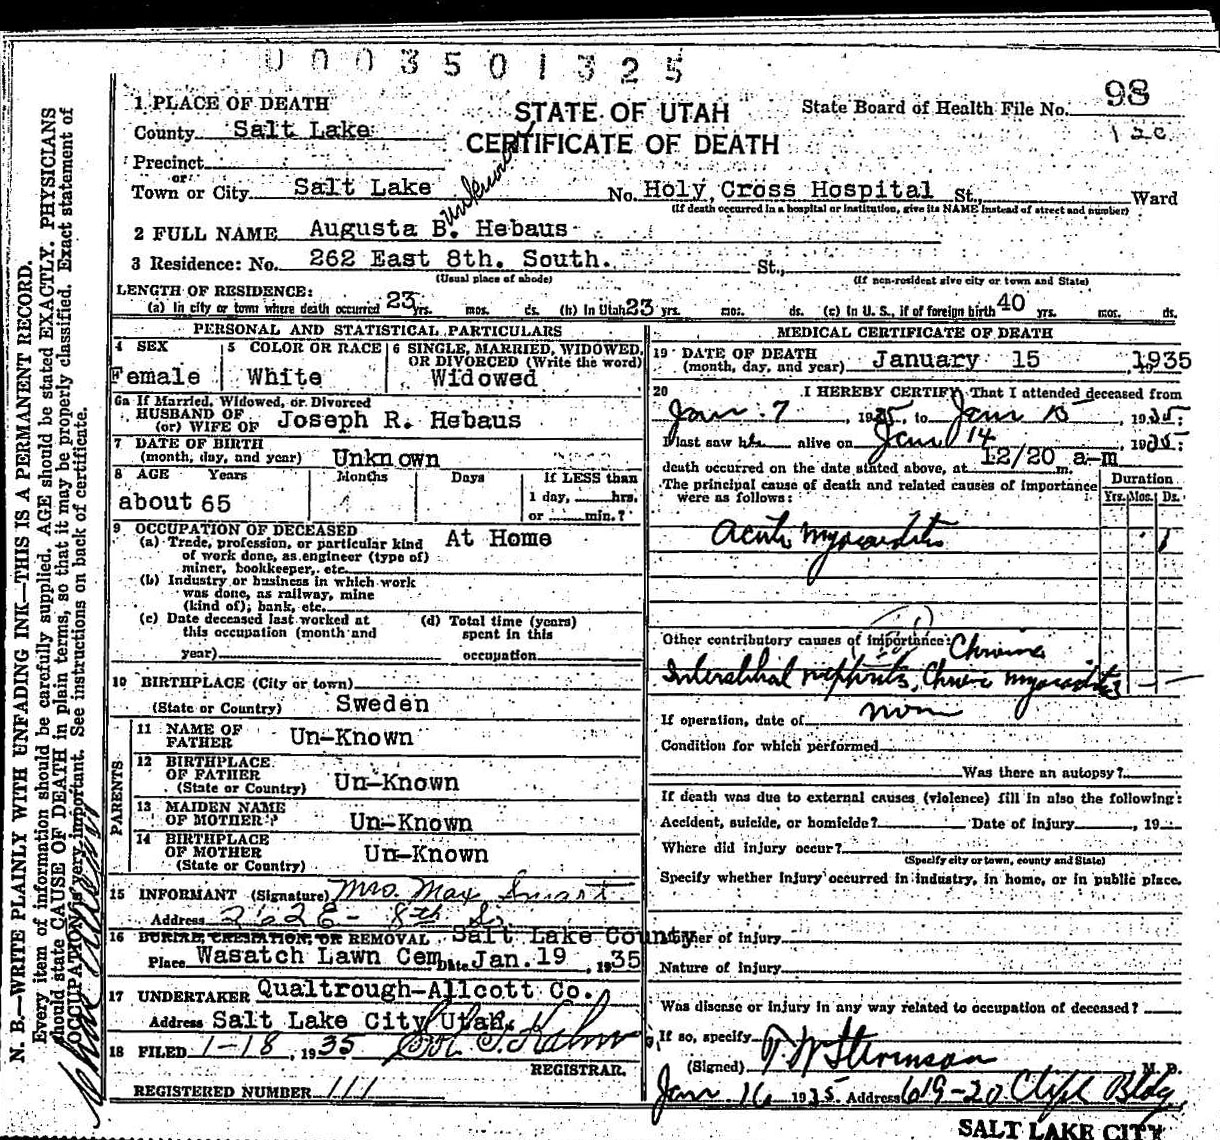 0003501325
98
1 PLACE OF DEATH
STATE OF UTAH
State Board of Health File No.
County Salt Lake
CERTIFICATE OF DEATH
Precinct
or
Town or City Salt Lake No. Holy Cross Hospital St., Ward
(If death occurred in a hospital or institution, give its NAME instead of street and number)
unknown
2 FULL NAME Augusta B. Hebaus
3 Residence: No. 262 East 8th. South. St.,
(Usual place of abode) (If non-resident give city or town and State)
LENGTH OF RESIDENCE:
(a) In city or town where death occurred 23 yrs. mos. ds. (b) In Utah 23 yrs. mos. ds. (c) In U. S., if of foreign birth 40 yrs. mos. ds.
PERSONAL AND STATISTICAL PARTICULARS
4 SEX
Female
5 COLOR OR RACE
White
6 SINGLE, MARRIED, WIDOWED,
OR DIVORCED (Write the word)
Widowed
6a If Married, Widowed, or Divorced
HUSBAND OF
(or) WIFE OF Joseph R. Hebaus
7 DATE OF BIRTH
(month, day, and year) Unknown
8 AGE Years Months Days If LESS than
about 65 1 day, hrs.
or min.?
9 OCCUPATION OF DECEASED
(a) Trade, profession, or particular kind At Home
of work done, as engineer (type of)
miner, bookkeeper, etc.
(b) Industry or business in which work
was done, as railway, mine
(kind of), bank, etc.
(c) Date deceased last worked at (d) Total time (years)
this occupation (month and spent in this
year) occupation
10 BIRTHPLACE (City or town)
(State or Country) Sweden
PARENTS
11 NAME OF
FATHER Un-Known
12 BIRTHPLACE
OF FATHER
(State or Country) Un-Known
13 MAIDEN NAME
OF MOTHER Un-Known
14 BIRTHPLACE
OF MOTHER
(State or Country) Un-Known
15 INFORMANT (Signature) Mrs. Max Smart
Address 262 E- 8th So
16 BURIAL, CREMATION, OR REMOVAL Salt Lake County
Place Wasatch Lawn Cem. Date Jan. 19, 1935
17 UNDERTAKER Qualtrough-Allcott Co.
Address Salt Lake City Utah.
18 FILED 1-18, 1935
REGISTRAR.
REGISTERED NUMBER 111
MEDICAL CERTIFICATE OF DEATH
19 DATE OF DEATH
(month, day, and year) January 15 1935
20 I HEREBY CERTIFY, That I attended deceased from
Jan. 7, 1935, to Jan 15, 1935;
I last saw her alive on Jan 14 1935;
death occurred on the date stated above, at 12/20 a-m m.
The principal cause of death and related causes of importance
were as follows:
Duration
Yrs. Mos. Ds.
Acute myocarditis 1
Other contributory causes of importance: Chronic
Interstitial nephritis, Chronic myocarditis
If operation, date of none
Condition for which performed
Was there an autopsy?
If death was due to external causes (violence) fill in also the following:
Accident, suicide, or homicide? Date of injury , 19
Where did injury occur?
(Specify city or town, county and State)
Specify whether injury occurred in industry, in home, or in public place.
Manner of injury
Nature of injury
Was disease or injury in any way related to occupation of deceased?
If so, specify
(Signed) T W Stevenson M. D.
Jan 16 1935 Address 619-20 Clift Bldg
SALT LAKE CITY
N. B.—WRITE PLAINLY WITH UNFADING INK—THIS IS A PERMANENT RECORD.
Every item of information should be carefully supplied. AGE should be stated EXACTLY. PHYSICIANS
should state CAUSE OF DEATH in plain terms, so that it may be properly classified. Exact statement of
OCCUPATION is very important. See instructions on back of certificate.